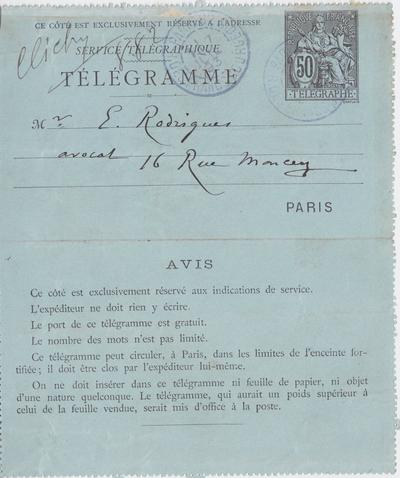 CE CÔTÉ EST EXCLUSIVEMENT RÉSERVÉ A L'ADRESSE
Clichy
SERVICE TÉLÉGRAPHIQUE
TÉLÉGRAMME
50
TÉLÉGRAPHE
Mr E. Rodrigues
avocat 16 Rue Moncey
PARIS
AVIS
Ce côté est exclusivement réservé aux indications de service.
L'expéditeur ne doit rien y écrire.
Le port de ce télégramme est gratuit.
Le nombre des mots n'est pas limité.
Ce télégramme peut circuler, à Paris, dans les limites de l'enceinte for-
tifiée; il doit être clos par l'expéditeur lui-même.
On ne doit insérer dans ce télégramme ni feuille de papier, ni objet
d'une nature quelconque. Le télégramme, qui aurait un poids supérieur à
celui de la feuille vendue, serait mis d'office à la poste.